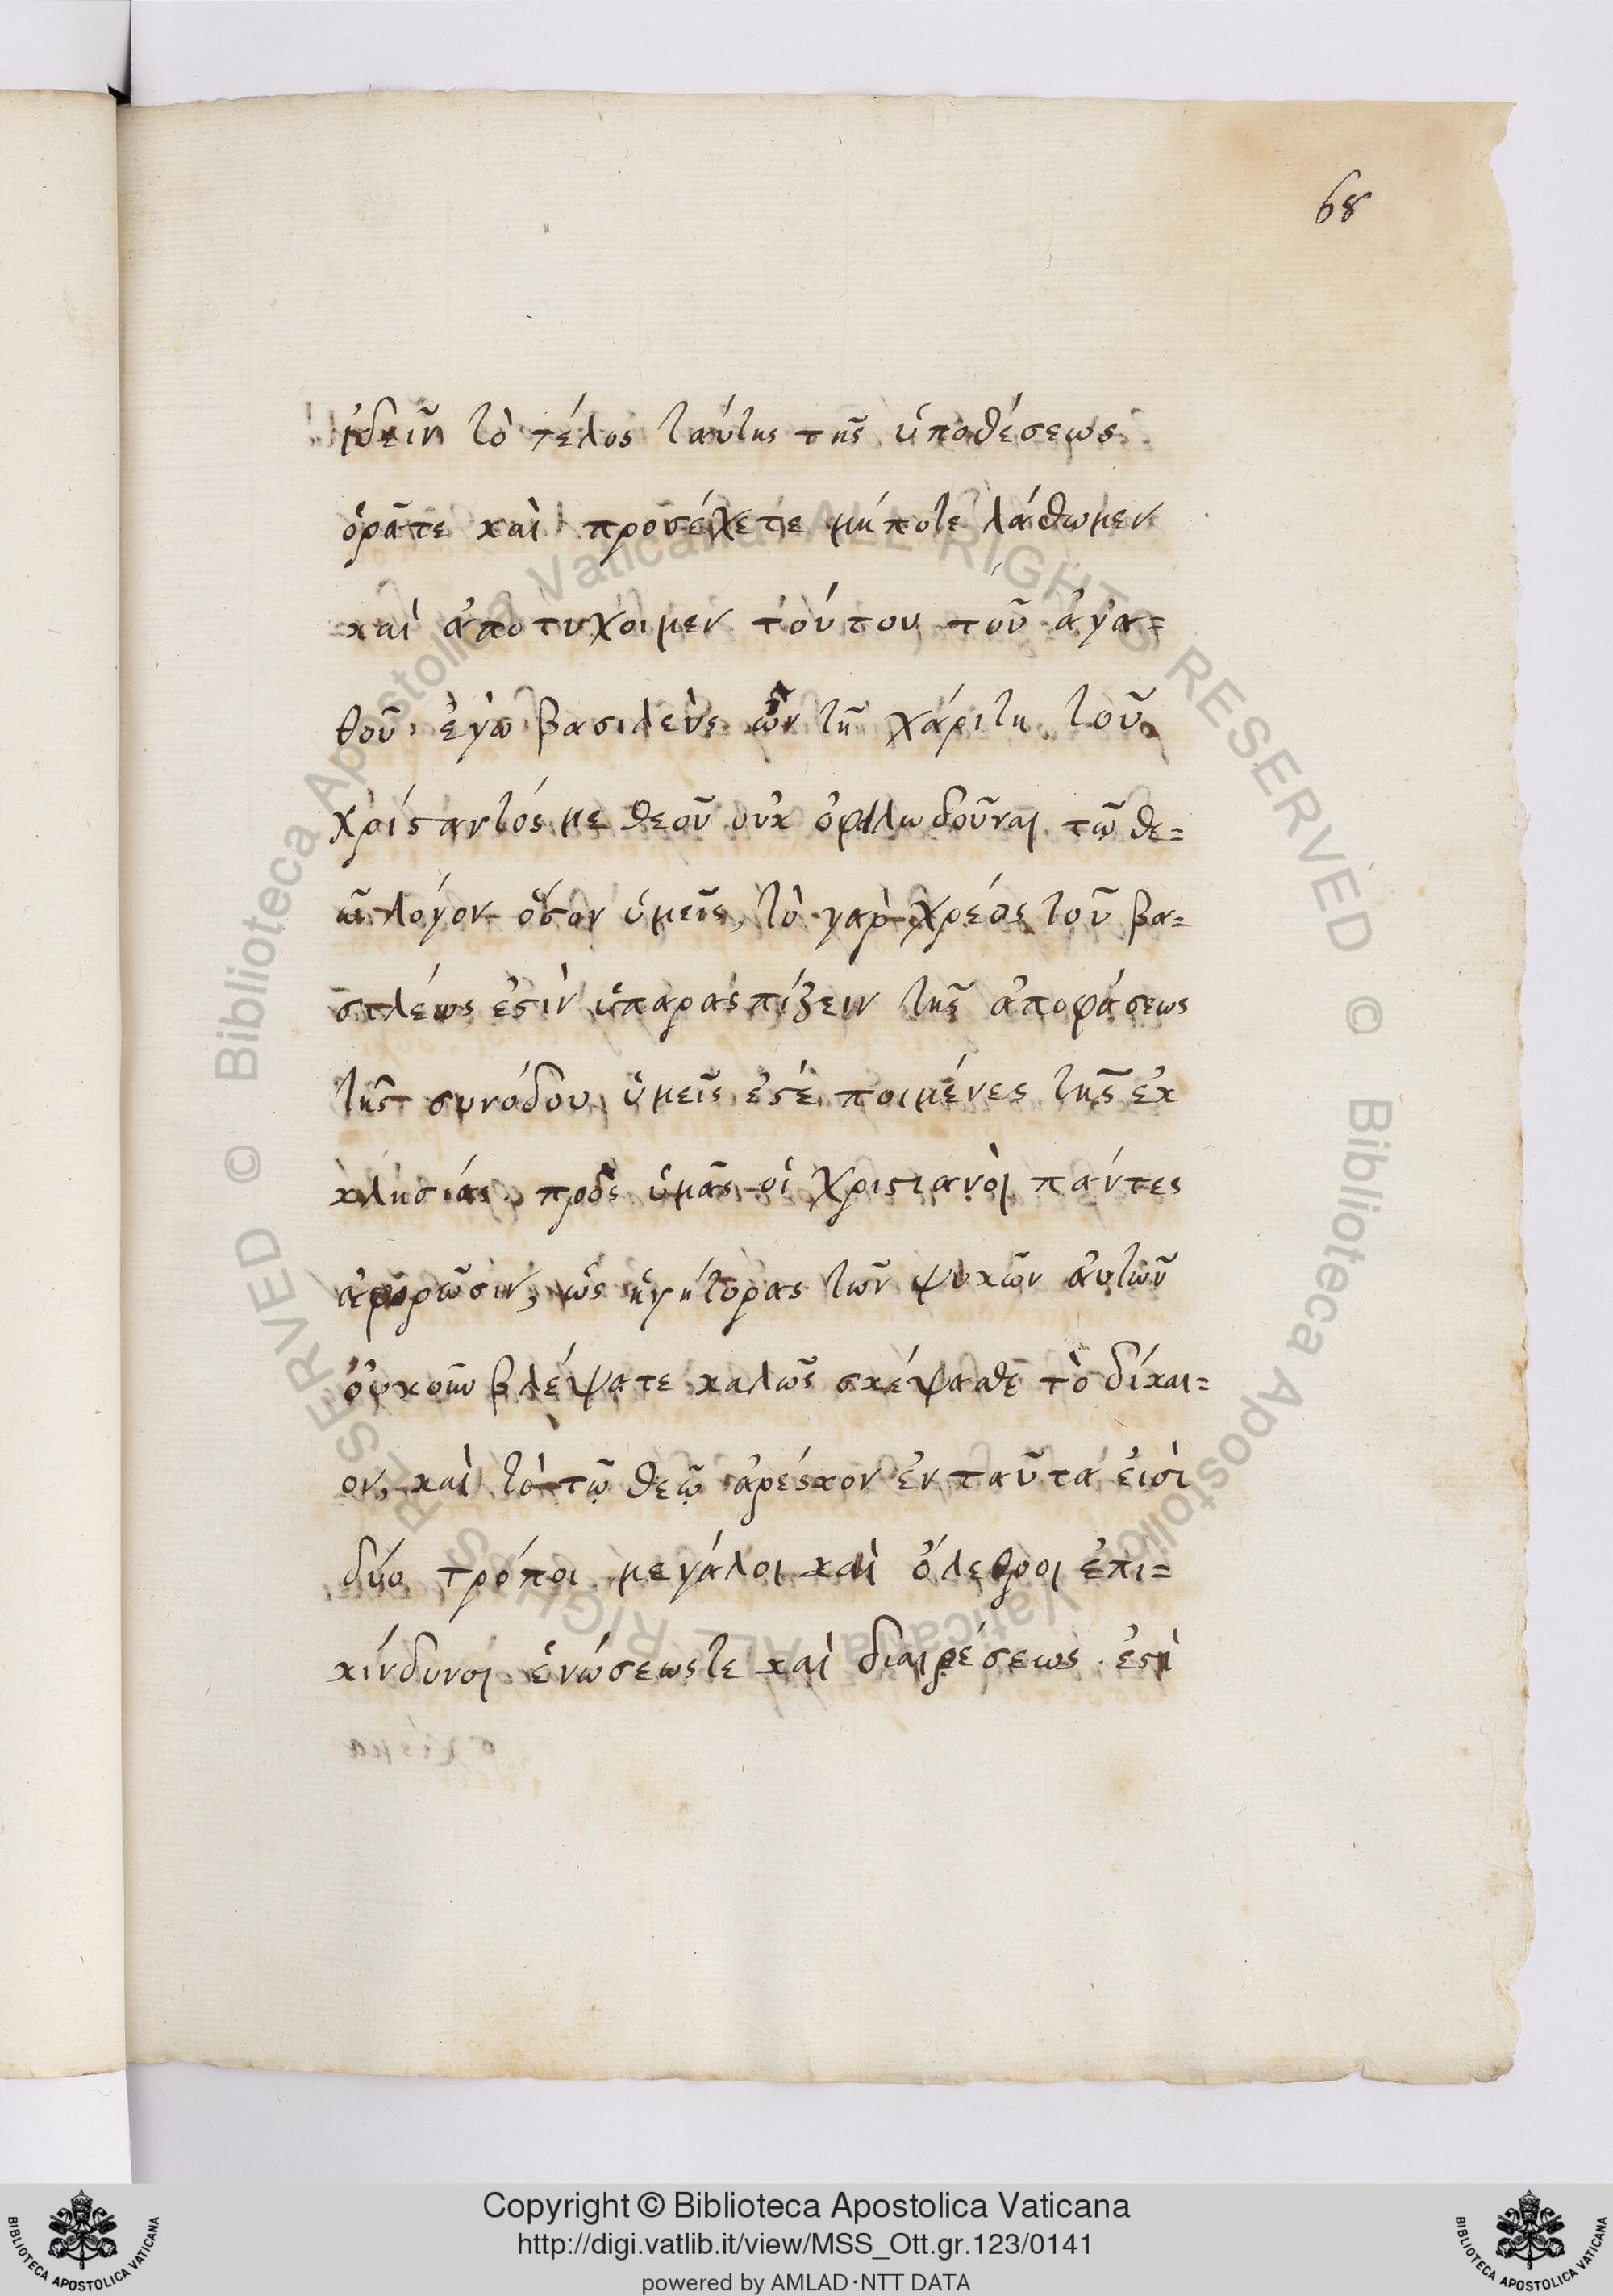 68
ἰδεῖν τὸ τέλος ταύτης τῆς ὑποθέσεως
ὁρᾶτε καὶ προσέχετε μήποτε λάθωμεν
καὶ ἀποτυχοιμεν τούτου τοῦ ἀγα=
θοῦ. ἐγὼ βασιλεὺς ὢν τῆ χάριτι τοῦ
χρίσαντός με θεοῦ οὐκ ὀφλω δοῦναι τῷ θε=
ῶ λόγον ὅσον ὑμεῖς, τὸ γαρ χρέος τοῦ βα=
σιλέως ἐστὶν ὑπαρασπίζειν τῆς ἀποφάσεως
τῆς συνόδου, ὑμεῖς ἐστέ ποιμένες τῆς ἐκ
κλησίας. πρὸς ὑμᾶς οἱ χριστιανοὶ πάντες
ἀφορῶσιν, ὡς ἡγήτορας τῶν ψυχῶν ἀυτῶν
ὀυκοῦν βλέψατε καλῶς σκέψασθε τὸ δίκαι=
ον, καὶ τὸ τῷ θεῷ ἀρέσκον ἐνταῦτα εἰσὶ
δύο τρόποι μεγάλοι καὶ ὄλεθροι ἐπι=
κίνδυνοι ἑνώσεώςτε καὶ διαιρέσεως. ἐστὶ
Copyright © Biblioteca Apostolica Vaticana
http://digi.vatlib.it/view/MSS_Ott.gr.123/0141
powered by AMLAD·NTT DATA
BIBLIOTECA APOSTOLICA VATICANA
BIBLIOTECA APOSTOLICA VATICANA
© Biblioteca Apostolica Vaticana ALL RIGHTS RESERVED © Biblioteca Apostolica Vaticana ALL RIGHTS RESERVED